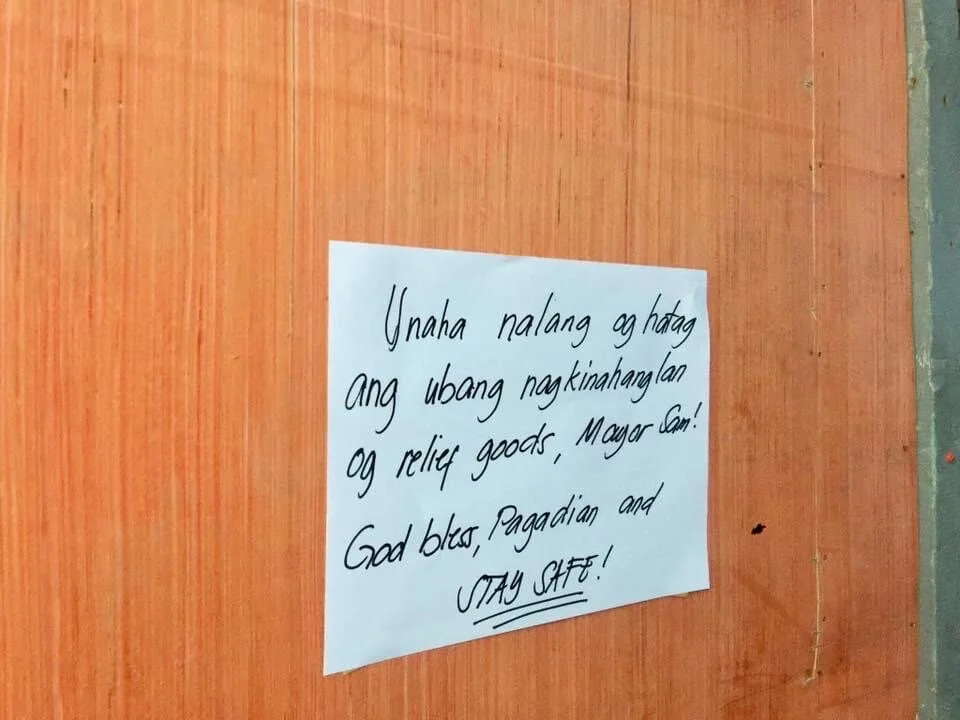 Unaha nalang og hatag
ang ubang nagkinahanglan
og relief goods, Mayor Sam!
God bless, Pagadian and
STAY SAFE!